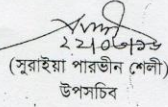 ২২/০৩/১৮
(সুরাইয়া পারভীন শেলী)
উপসচিব